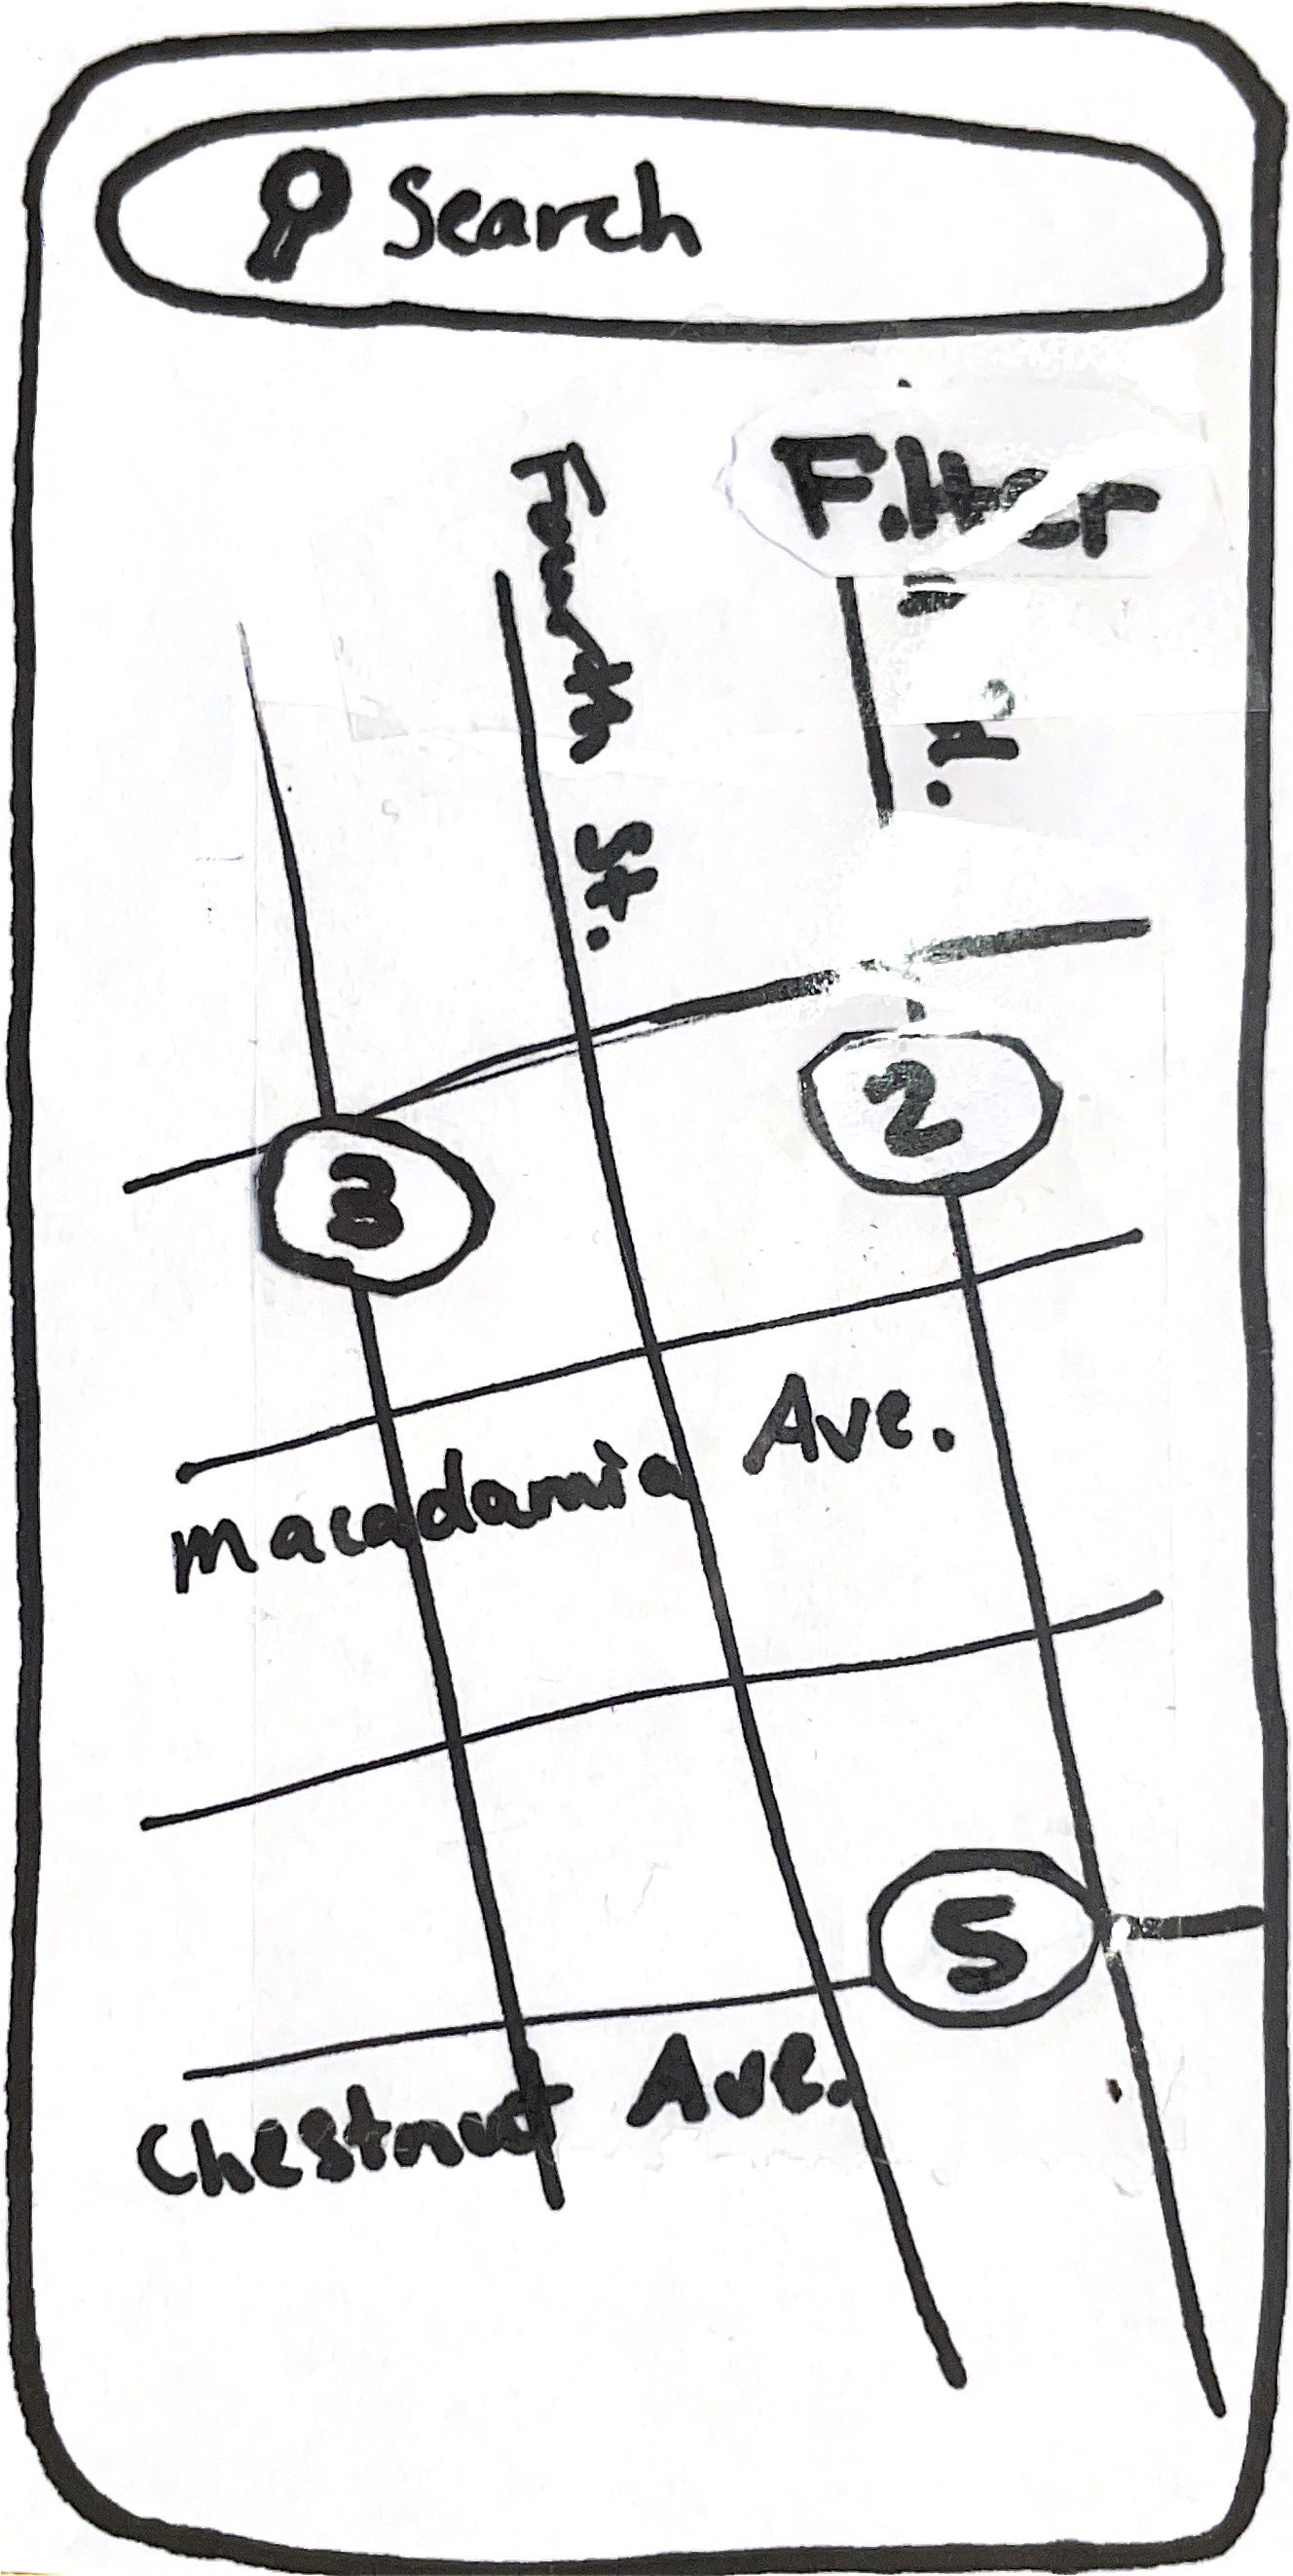 Search
Filter
Fourth St.
2
3
Macadamia Ave.
5
Chestnut Ave.